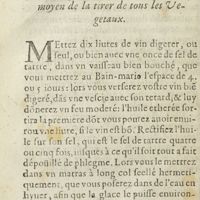 moyen de la tirer de tous les Ve-
getaux.
METtez dix liures de vin digerer, ou
seul, ou bien auec vne once de sel de
tartre, dans vn vaisseau bien bouché, que
vous mettrez au Bain-marie l'espace de 4,
ou 5 iours: lors vous verserez vostre vin biẽ
digeré, dãs vne vescie auec son tetard, & luy
dónerez vn feu moderé: l'huile etherée sor-
tira la premiere dõt vous pourez auoir enui-
rou vne liure, si le vin est bõ. Rectifiez l'hui-
le sur son sel, qui est le sel de tartre quatre
ou cinq fois, iusques à ce qu'il soit tout à fait
dépoüillé de phlegme. Lors vous le mettrez
dans vn matras à long col seellé hermeti-
quement, que vous poserez dans de l'eau en
hyuer, afin que la glace le puisse environ-